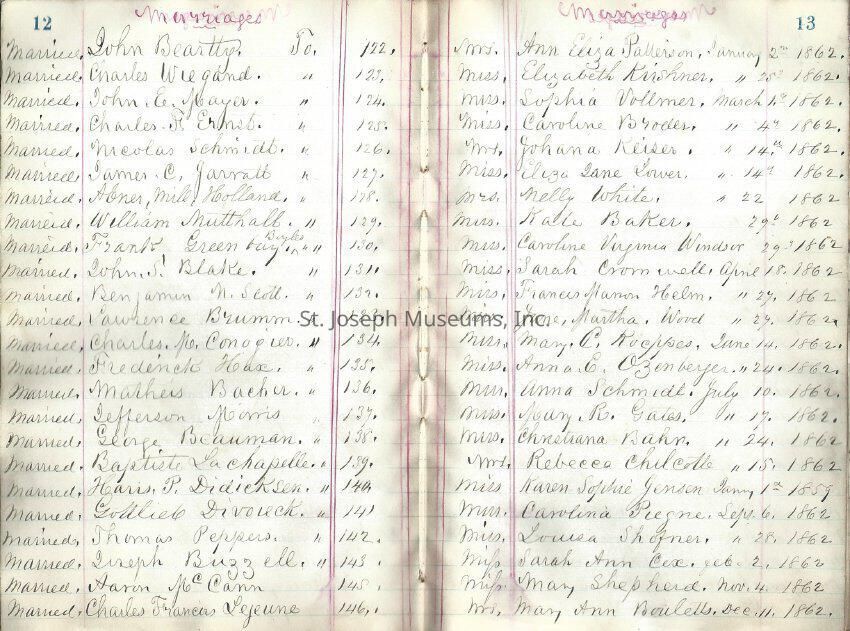 12 Marriages
Married, John Beartty. To. 122.
Married, Charles Wiegand. " 123.
Married, John. E. Mayer. " 124.
Married, Charles. R. Ernst. " 125.
Married, Nicolas Schmidt. " 126.
Married, James. C. Jarratt " 127.
Married, Abner, Milt Holland. " 128.
Married, William Mutthall. " 129.
Married, Frank Green " 130.
Married, John. S. Blake. " 131.
Married, Benjamin N. Scott. " 132.
Married, Lawrence Brumm
Married, Charles. M. Conogier. " 134.
Married, Frederick Hax. " 135.
Married, Matheis Bacher. " 136.
Married, Jefferson Morris " 137.
Married, George Beauman. " 138.
Married, Baptiste Lachapelle. " 139.
Married, Hans. P. Didicksen. " 140.
Married, Gottlieb " 141
Married, Thomas Peppers. " 142.
Married, Joseph Buzzell. " 143.
Married, Aaron McCann 145.
Married, Charles Francis Lejeune 146.
Marriages 13
Mrs. Ann Eliza Patterson, January 2nd 1862.
Miss, Elizabeth Kirshner. " 1862.
Miss. Sophia Vollmer. March 1st 1862.
Miss, Caroline Broder. " 4th 1862.
Mrs. Johana Keiser. " 14th 1862.
Miss. Eliza Jane Lower. " 14th 1862.
Mrs. Nelly White. " 22 1862
Miss. Kate Baker. 29th 1862
Miss. Caroline Virginia Windsor 29th 1862
Miss, Sarah Cromwell. April 18. 1862.
Miss, Francis Manon Helm. " 27. 1862.
Martha. Wood " 27. 1862.
Miss, Mary. C. Koeppes, June 14. 1862.
Miss. Anna. E. Ozenberger. " 24. 1862.
Miss, Anna Schmidt. July 10. 1862.
Miss. Mary. R. Gates. " 17. 1862.
Miss. Christiana Bahn. " 24. 1862.
Mrs. Rebecca Chilcotte " 15. 1862
Miss Karen Sophie Jensen Janry 1st 1859
Miss. Carolina Piegne. Sept. 6. 1862
Miss. Louisa Shofner. " 28. 1862
Miss Sarah Ann Cox. Feb. 2. 1862
Miss. Mary Shepherd. Nov. 4. 1862
Mrs. Mary Ann Bouletts. Dec. 11. 1862.
St. Joseph Museums, Inc.